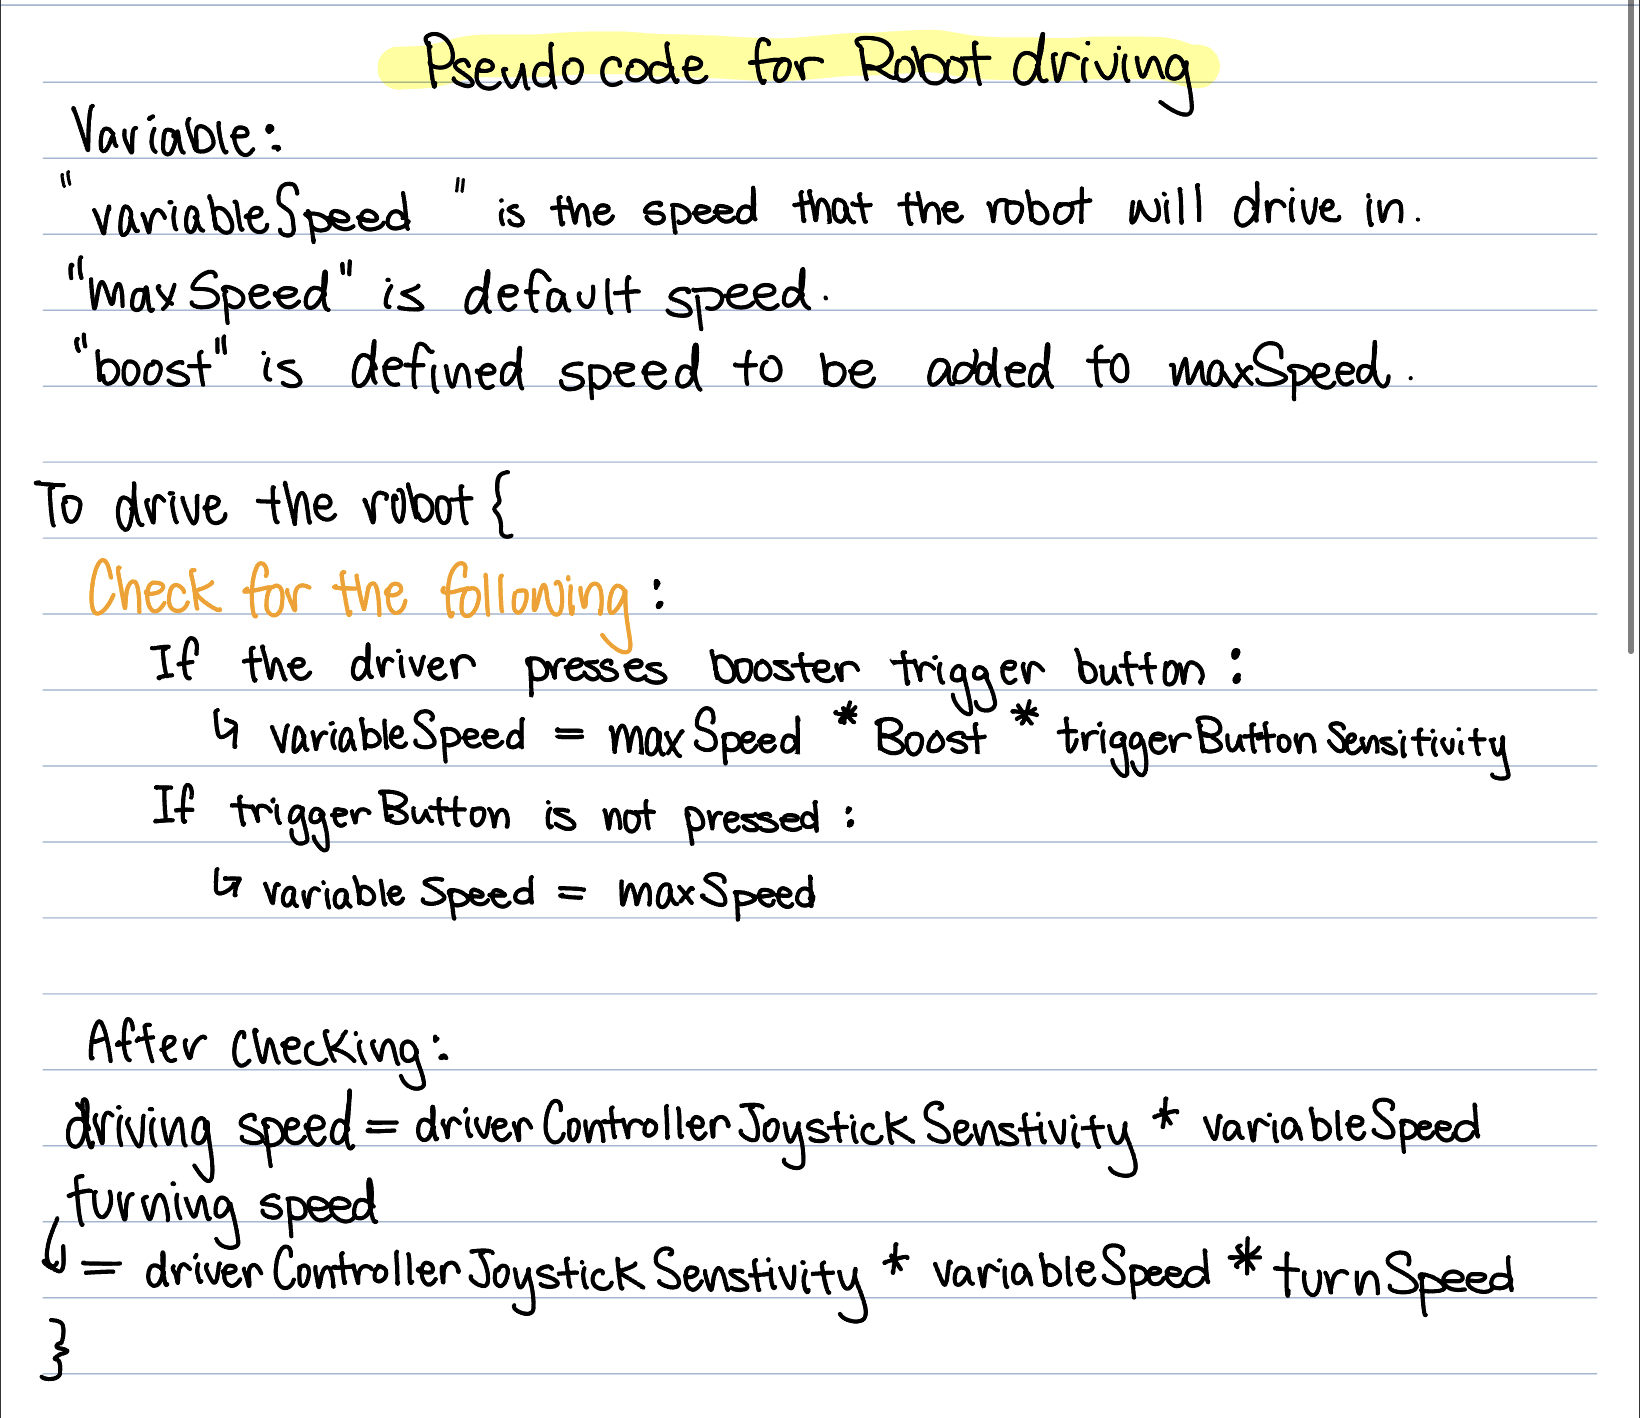 Pseudo code for Robot driving
Variable:
"variableSpeed" is the speed that the robot will drive in.
"maxSpeed" is default speed.
"boost" is defined speed to be added to maxSpeed.
To drive the robot {
Check for the following:
If the driver presses booster trigger button:
↳ variableSpeed = maxSpeed * Boost * triggerButtonSensitivity
If triggerButton is not pressed:
↳ variableSpeed = maxSpeed
After checking:
driving speed = driverControllerJoystickSenstivity * variableSpeed
turning speed
↳ = driverControllerJoystickSenstivity * variableSpeed * turnSpeed
}